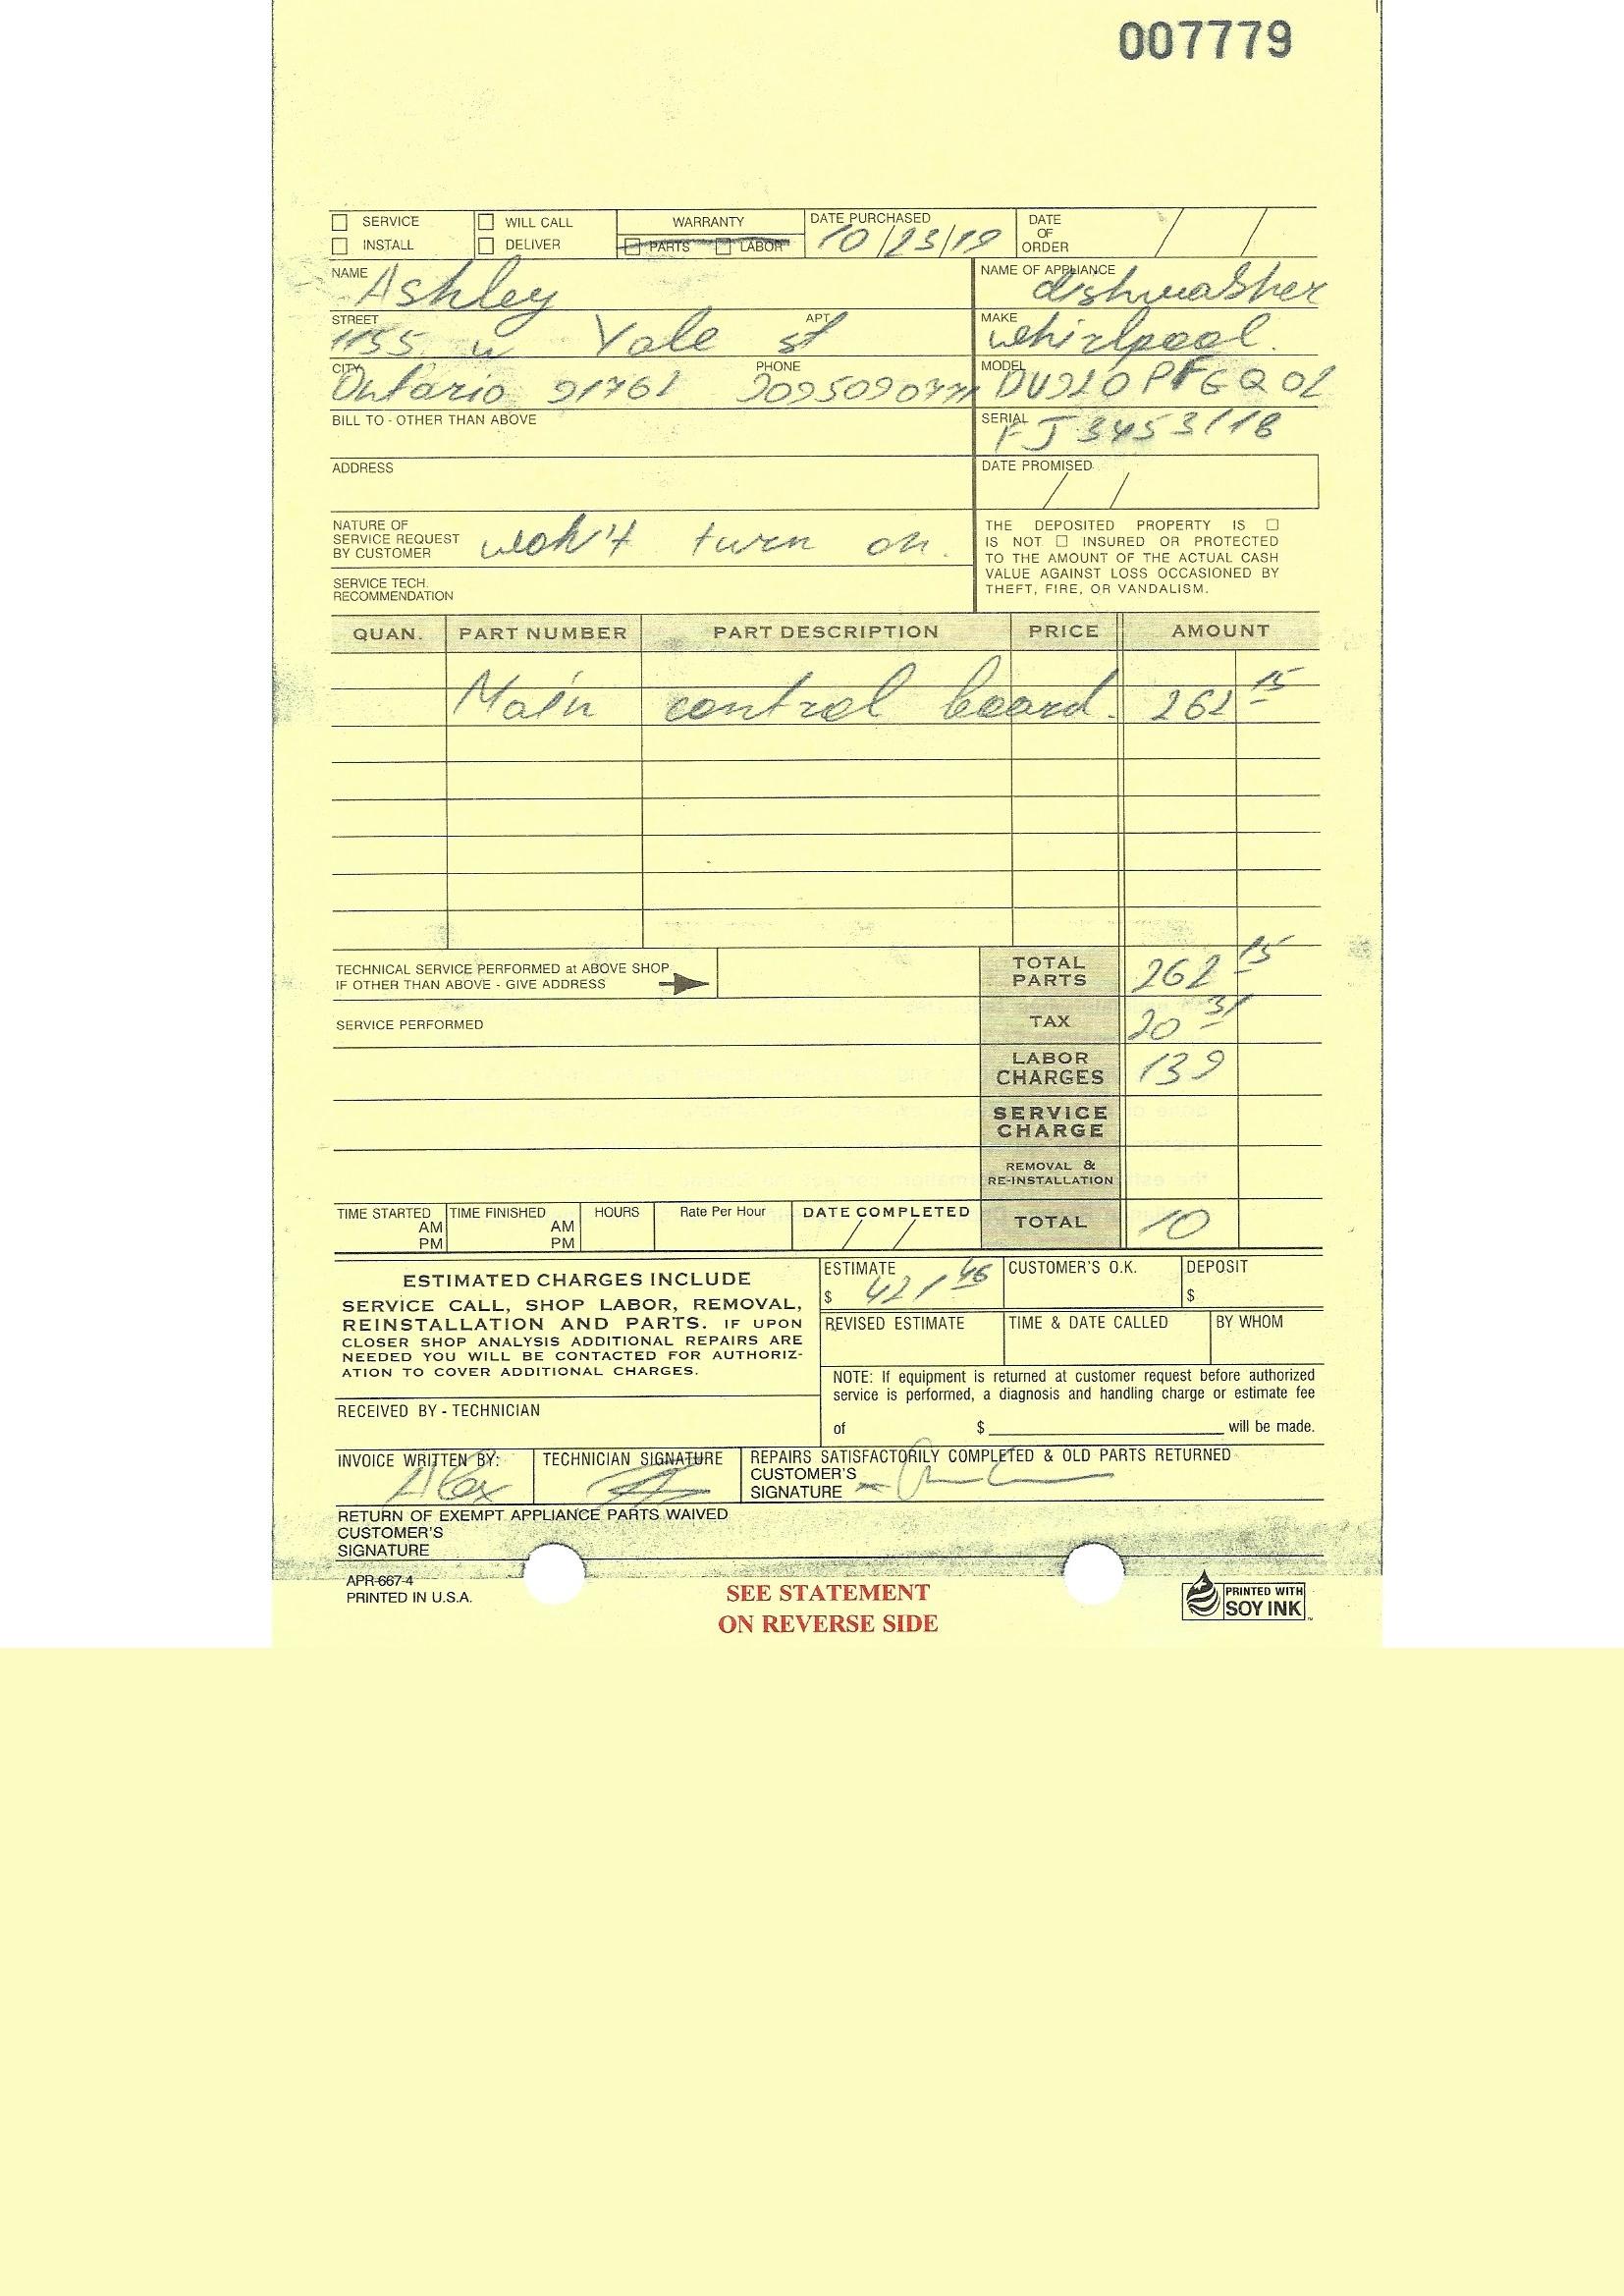 007779
SERVICE WILL CALL WARRANTY DATE PURCHASED DATE OF ORDER
INSTALL DELIVER PARTS LABOR 10/23/19
NAME Ashley NAME OF APPLIANCE dishwasher
STREET 1155 w Yale st APT MAKE whirlpool.
CITY Ontario 91761 PHONE MODEL DU920PFGQ02
BILL TO - OTHER THAN ABOVE SERIAL FJ3453118
ADDRESS DATE PROMISED
NATURE OF
SERVICE REQUEST
BY CUSTOMER won't turn on.
THE DEPOSITED PROPERTY IS
IS NOT INSURED OR PROTECTED
TO THE AMOUNT OF THE ACTUAL CASH
VALUE AGAINST LOSS OCCASIONED BY
THEFT, FIRE, OR VANDALISM.
SERVICE TECH.
RECOMMENDATION
QUAN. PART NUMBER PART DESCRIPTION PRICE AMOUNT
Main control board. 262 15
TECHNICAL SERVICE PERFORMED at ABOVE SHOP
IF OTHER THAN ABOVE - GIVE ADDRESS
TOTAL PARTS 262 15
SERVICE PERFORMED TAX 20 31
LABOR CHARGES 139
SERVICE CHARGE
REMOVAL & RE-INSTALLATION
TIME STARTED AM PM TIME FINISHED AM PM HOURS Rate Per Hour DATE COMPLETED TOTAL 10
ESTIMATED CHARGES INCLUDE
SERVICE CALL, SHOP LABOR, REMOVAL,
REINSTALLATION AND PARTS. IF UPON
CLOSER SHOP ANALYSIS ADDITIONAL REPAIRS ARE
NEEDED YOU WILL BE CONTACTED FOR AUTHORIZ-
ATION TO COVER ADDITIONAL CHARGES.
ESTIMATE $ 421 46 CUSTOMER'S O.K. DEPOSIT $
REVISED ESTIMATE TIME & DATE CALLED BY WHOM
NOTE: If equipment is returned at customer request before authorized
service is performed, a diagnosis and handling charge or estimate fee
of $ will be made.
RECEIVED BY - TECHNICIAN
INVOICE WRITTEN BY: Alex TECHNICIAN SIGNATURE REPAIRS SATISFACTORILY COMPLETED & OLD PARTS RETURNED
CUSTOMER'S
SIGNATURE
RETURN OF EXEMPT APPLIANCE PARTS WAIVED
CUSTOMER'S
SIGNATURE
APR-667-4
PRINTED IN U.S.A.
SEE STATEMENT
ON REVERSE SIDE
PRINTED WITH
SOY INK